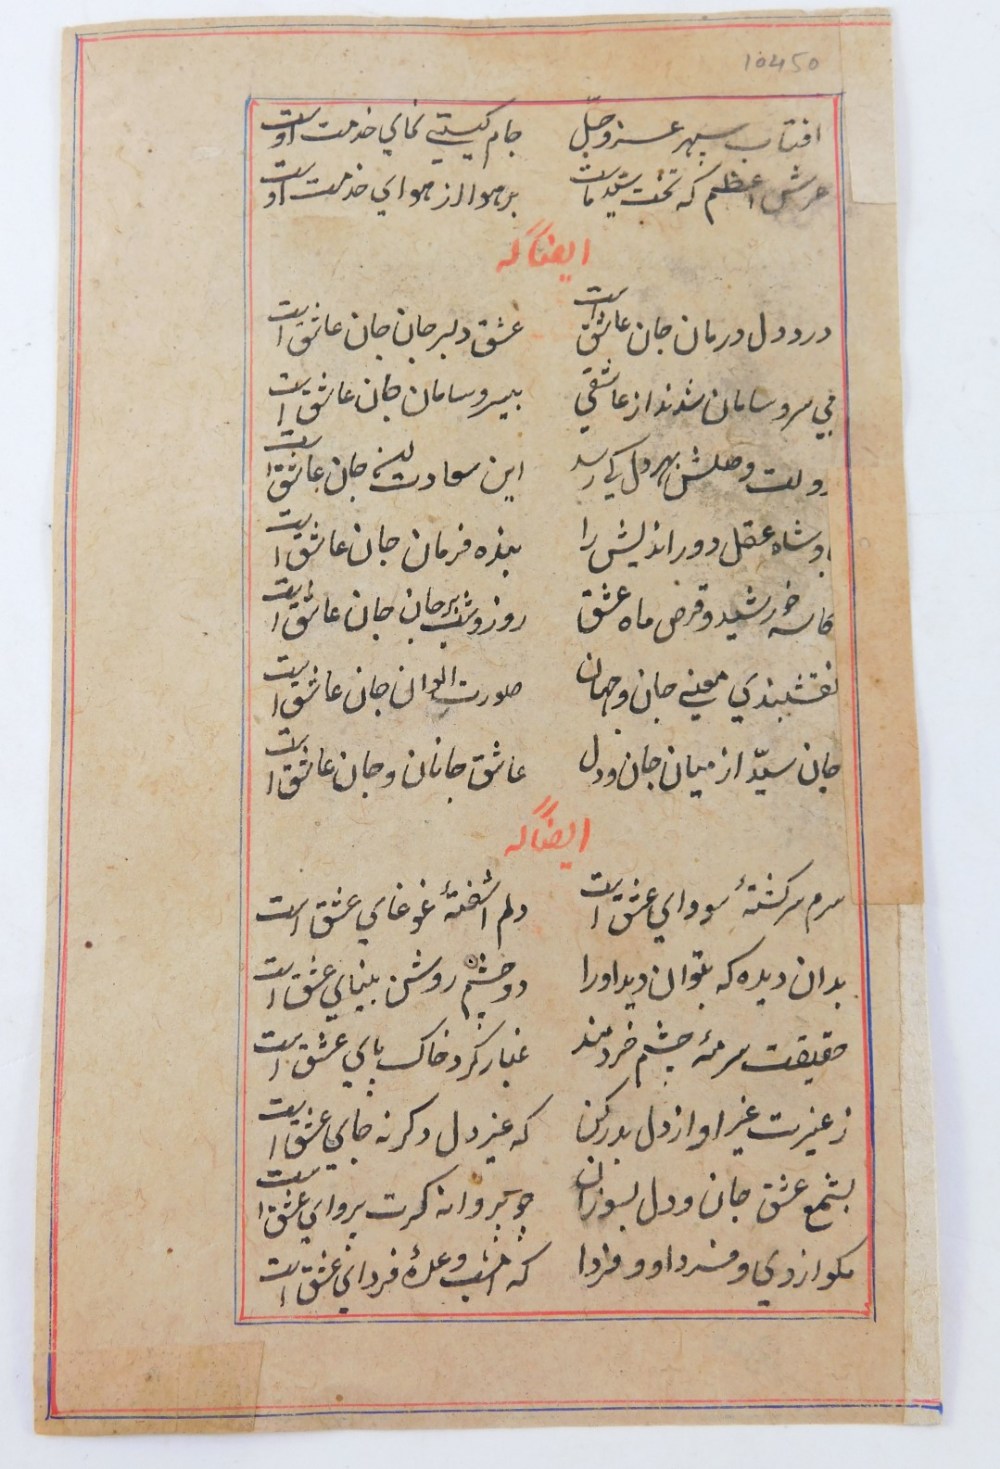 10450
افتاب سپهر عز و جلّ جام گیتی نمای خدمت اوست
عرش اعظم که تخت سید ماست بر هوا از هوای خدمت اوست
ایضاً له
درد دل درمان جان عاشق است عشق دلبر جان جان عاشق است
بی سر و سامان شدند از عاشقی بیسر و سامان جان عاشق است
دولت وصلش بهر دل کی رسد این سعادت جان عاشق است
بادشاه عقل دور اندیش را بنده فرمان جان عاشق است
کاسه خورشید و قرص ماه عشق روز و شب بر خان جان عاشق است
نقشبندی معنی جان و جهان صورت ایوان جان عاشق است
جان سیّد از میان جان و دل عاشق جانان و جان عاشق است
ایضاً له
سرم سرگشتهٔ سودای عشق است دلم اشفتهٔ غوغای عشق است
بدان دیده که بتوان دید او را دو چشم روشن بینای عشق است
حقیقت سرمهٔ چشم خردمند غبار گرد خاک پای عشق است
ز غیرت غیر او از دل بدر کن که غیر دل دگر نه جای عشق است
بشمع عشق جان و دل بسوزان چو پروانه گرت پروای عشق است
مگو از دی و فردا و و فردا که امشب وعدهٔ فردای عشق است